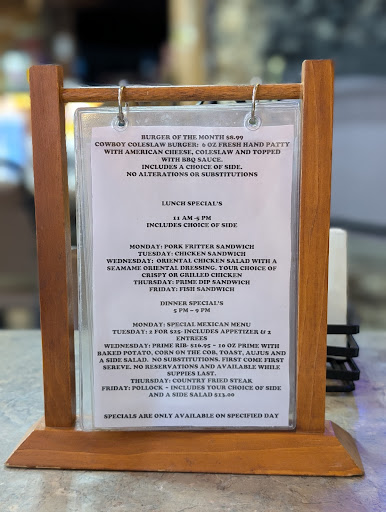 BURGER OF THE MONTH $8.99
COWBOY COLESLAW BURGER: 6 OZ FRESH HAND PATTY
WITH AMERICAN CHEESE, COLESLAW AND TOPPED
WITH BBQ SAUCE.
INCLUDES A CHOICE OF SIDE.
NO ALTERATIONS OR SUBSTITUTIONS
LUNCH SPECIAL'S
11 AM -5 PM
INCLUDES CHOICE OF SIDE
MONDAY: PORK FRITTER SANDWICH
TUESDAY: CHICKEN SANDWICH
WEDNESDAY: ORIENTAL CHICKEN SALAD WITH A
SEAMAME ORIENTAL DRESSING. YOUR CHOICE OF
CRISPY OR GRILLED CHICKEN
THURSDAY: PRIME DIP SANDWICH
FRIDAY: FISH SANDWICH
DINNER SPECIAL'S
5 PM – 9 PM
MONDAY: SPECIAL MEXICAN MENU
TUESDAY: 2 FOR $25- INCLUDES APPETIZER & 2
ENTREES
WEDNESDAY: PRIME RIB- $16.95 - 10 OZ PRIME WITH
BAKED POTATO, CORN ON THE COB, TOAST, AUJUS AND
A SIDE SALAD. NO SUBSTITUTIONS. FIRST COME FIRST
SEREVE. NO RESERVATIONS AND AVAILABLE WHILE
SUPPIES LAST.
THURSDAY: COUNTRY FRIED STEAK
FRIDAY: POLLOCK - INCLUDES YOUR CHOICE OF SIDE
AND A SIDE SALAD $13.00
SPECIALS ARE ONLY AVAILABLE ON SPECIFIED DAY